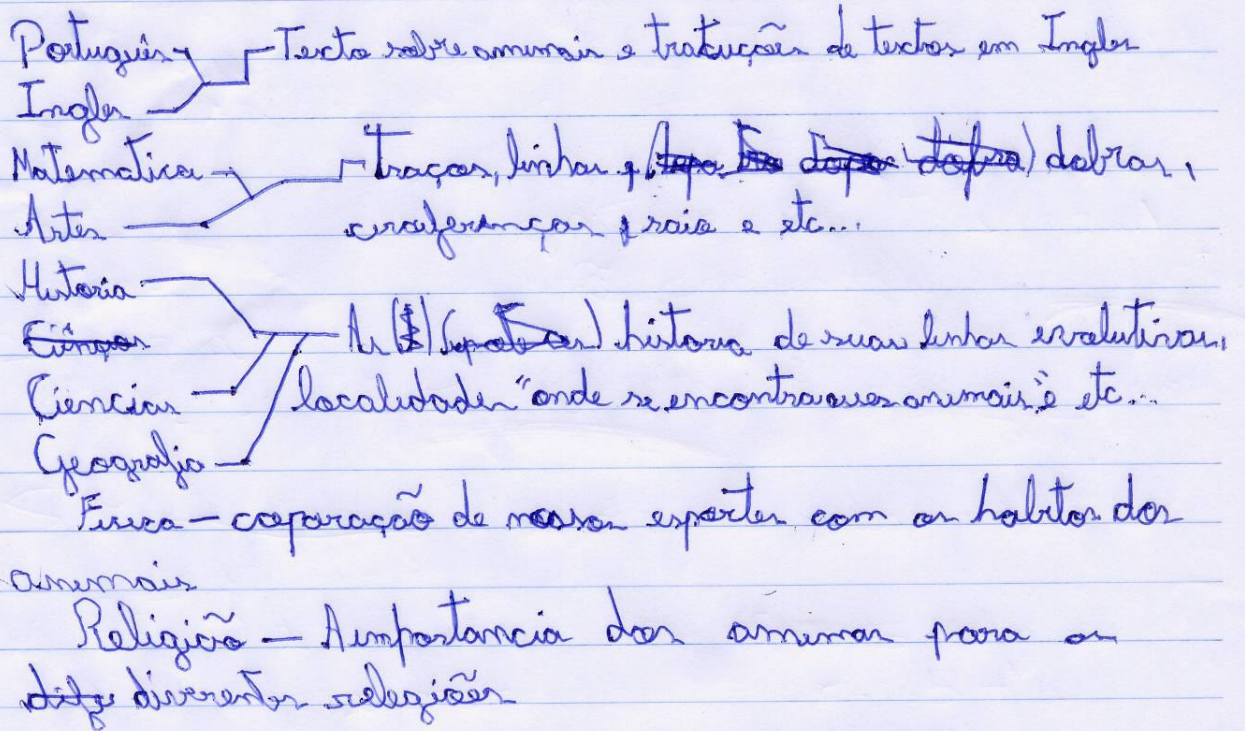 Português
Texto sobre animais e tratuções de textos em Ingles
Ingles
Matematica
Traços, linhas, dobras,
Artes
circuferenças, raio e etc...
Historia
Ciências
As historia de suas linhas evolutivas,
Ciencias
localidades "onde se encontra esses animais" e etc...
Geografia
Fisica - coparação de nossos esportes com os habitos dos
animais
Religião - A importancia dos animas para as
diverentes relegiões